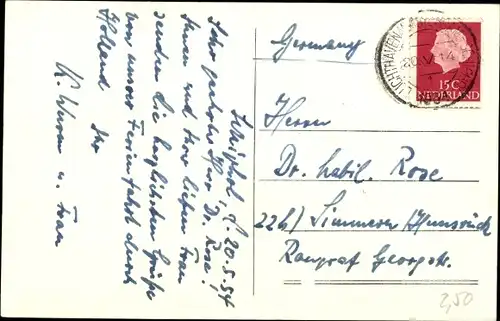 Schiphol, d. 20.5.54
Sehr geehrter Herr Dr. Rose!
Ihnen und Ihrer lieben Frau
senden die herzlichsten Grüße
von unsrer Ferienfahrt durch
Holland Ihr
K. und Frau
Germany
Herrn
Dr. habil. Rose
22b) Simmern/Hunsrück
Raugraf Georgstr.
15 C
NEDERLAND
LUCHTHAVEN
20.V
2,50